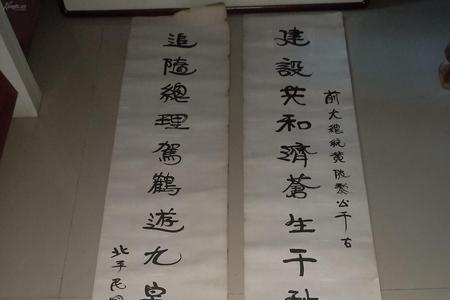 建設共和濟蒼生千秋
前大總統黃陂黎公千古
追隨總理駕鶴遊九皋
北平民國